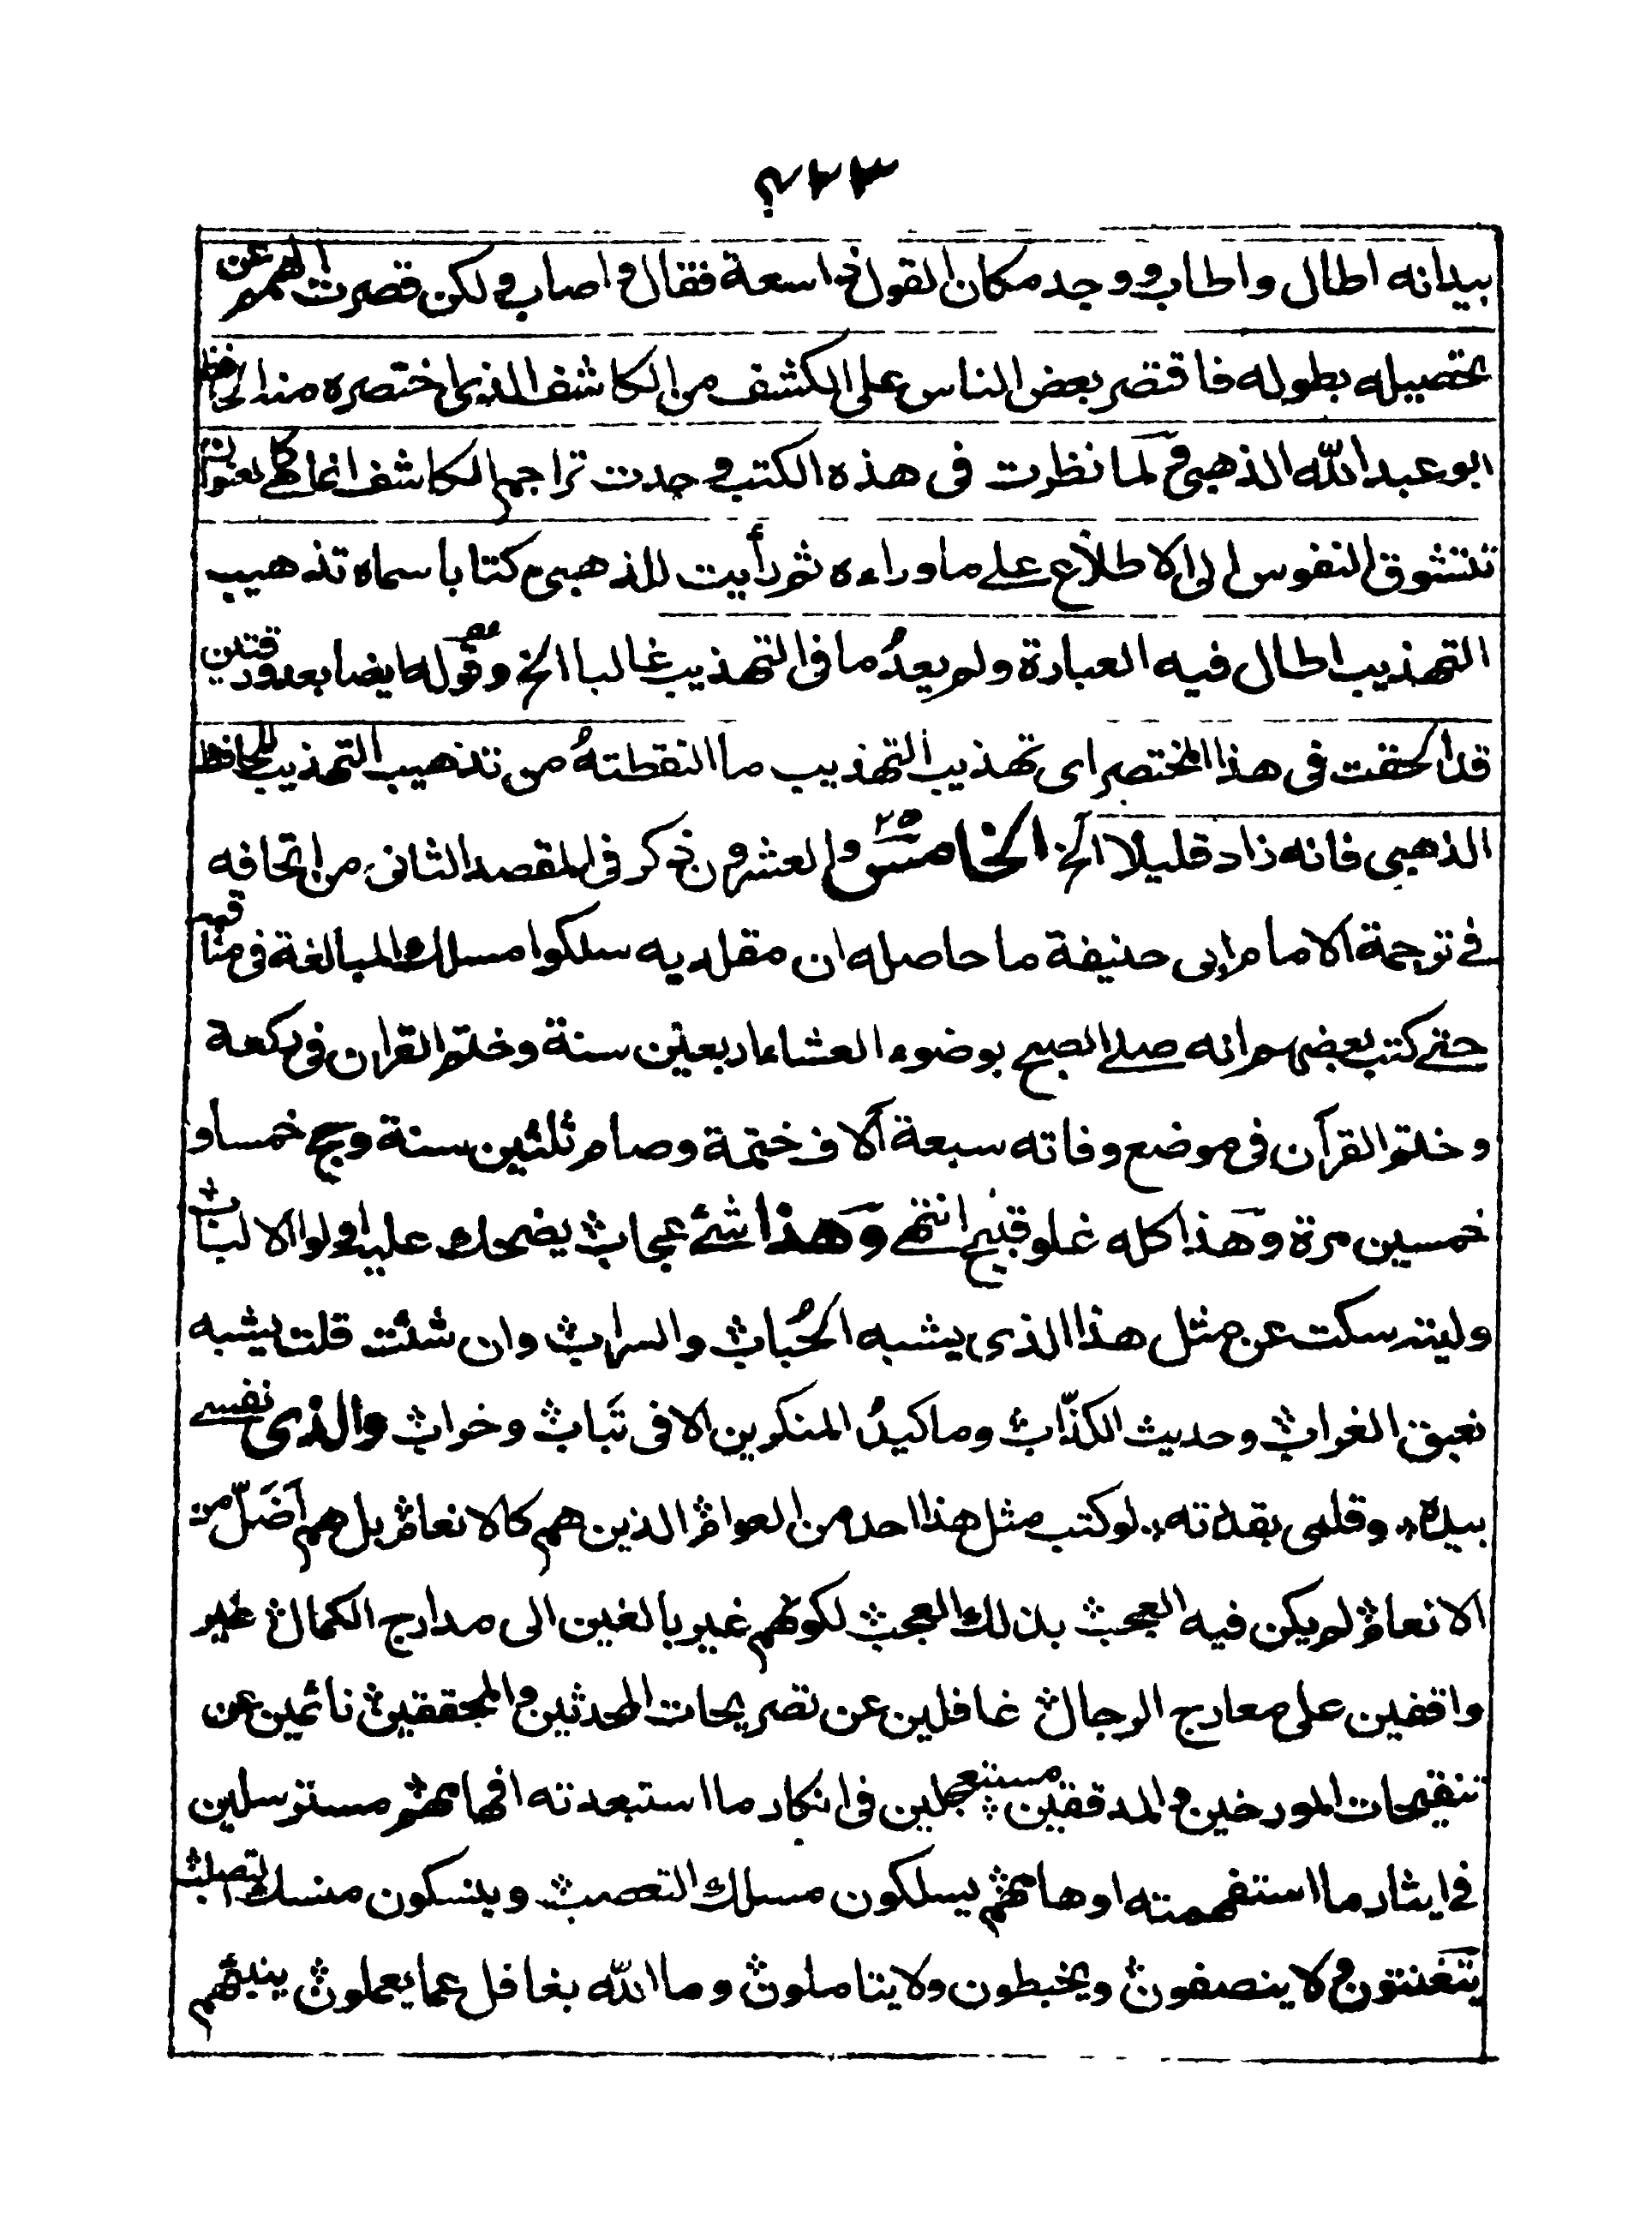 ٢٣٣
بيد انه اطال واطاب ووجد مكان القول ذا سعة فقال واصاب ولكن قصرت الهمم عن
تحصيله بطوله فاقتصر بعض الناس على الكشف من الكاشف الذى اختصره منه الحافظ
ابو عبد الله الذهبى ولما نظرت فى هذه الكتب وجدت تراجم الكاشف انما هى كالعنوان
تتشوق النفوس الى الاطلاع على ما وراءه ثم رأيت للذهبى كتابا سماه تذهيب
التهذيب اطال فيه العبارة ولم يعدُ ما فى التهذيب غالبا الخ وقوله ايضا بعد ورقتين
قد الحقت فى هذا المختصر اى تهذيب التهذيب ما التقطتهُ من تذهيب التهذيب للحافظ
الذهبى فانه زاد قليلا الخ الخامس ٢٥ والعشرون ذكر فى المقصد الثانى من اتحافه
فى ترجمة الامام ابى حنيفة ما حاصله ان مقلديه سلكوا مسلك المبالغة فى مناقبه
حتى كتب بعضهم انه صلى الصبح بوضوء العشاء اربعين سنة وختم القران فى ركعة
وختم القرآن فى موضع وفاته سبعة آلاف ختمة وصام ثلثين سنة وحج خمسا و
خمسين مرة وهذا كله غلو قبيح انتهى وهذا شئ عجاب يضحك عليه اولوا الالباب
وليته سكت عن مثل هذا الذى يشبه الحُباب والسراب وان شئت قلت يشبه
نعيق الغراب وحديث الكذّاب وما كيدُ المنكرين الا فى تَباب وخراب والذى نفسى
بيده وقلمى بقدرته لو كتب مثل هذا احد من العوام الذين هم كالانعام بل هم اَضَلّ من
الانعام لم يكن فيه العجب بذلك العجب لكونهم غير بالغين الى مدارج الكمال غير
واقفين على معارج الرجال غافلين عن تصريحات المحدثين والمحققين نائمين عن
تنقيحات المورخين والمدققين مستعجلين فى انكار ما استبعدته افهامهم مسترسلين
فى ايثار ما استفهمته اوهامهم يسلكون مسلك التعصب وينسكون منسك التصلب
يتعنتون ولا ينصفون ويخبطون ولا يتاملون وما الله بغافل عما يعملون ينبئهم